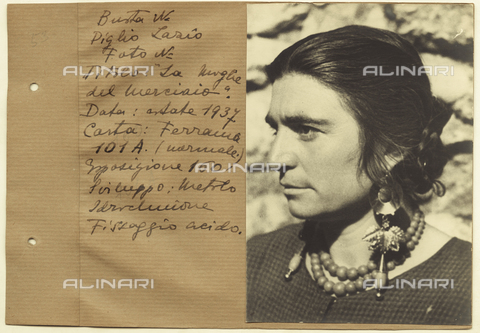 Busta №
Piglio Lazio
Foto №
"La Moglie
del Merciaio".
Data: estate 1937
Carta: Ferrania
101 A. (normale)
Esposizione 1:50
Sviluppo: Metolo
Idrochinone
Fissaggio acido.
ALINARI
ALINARI
ALINARI
ALINARI